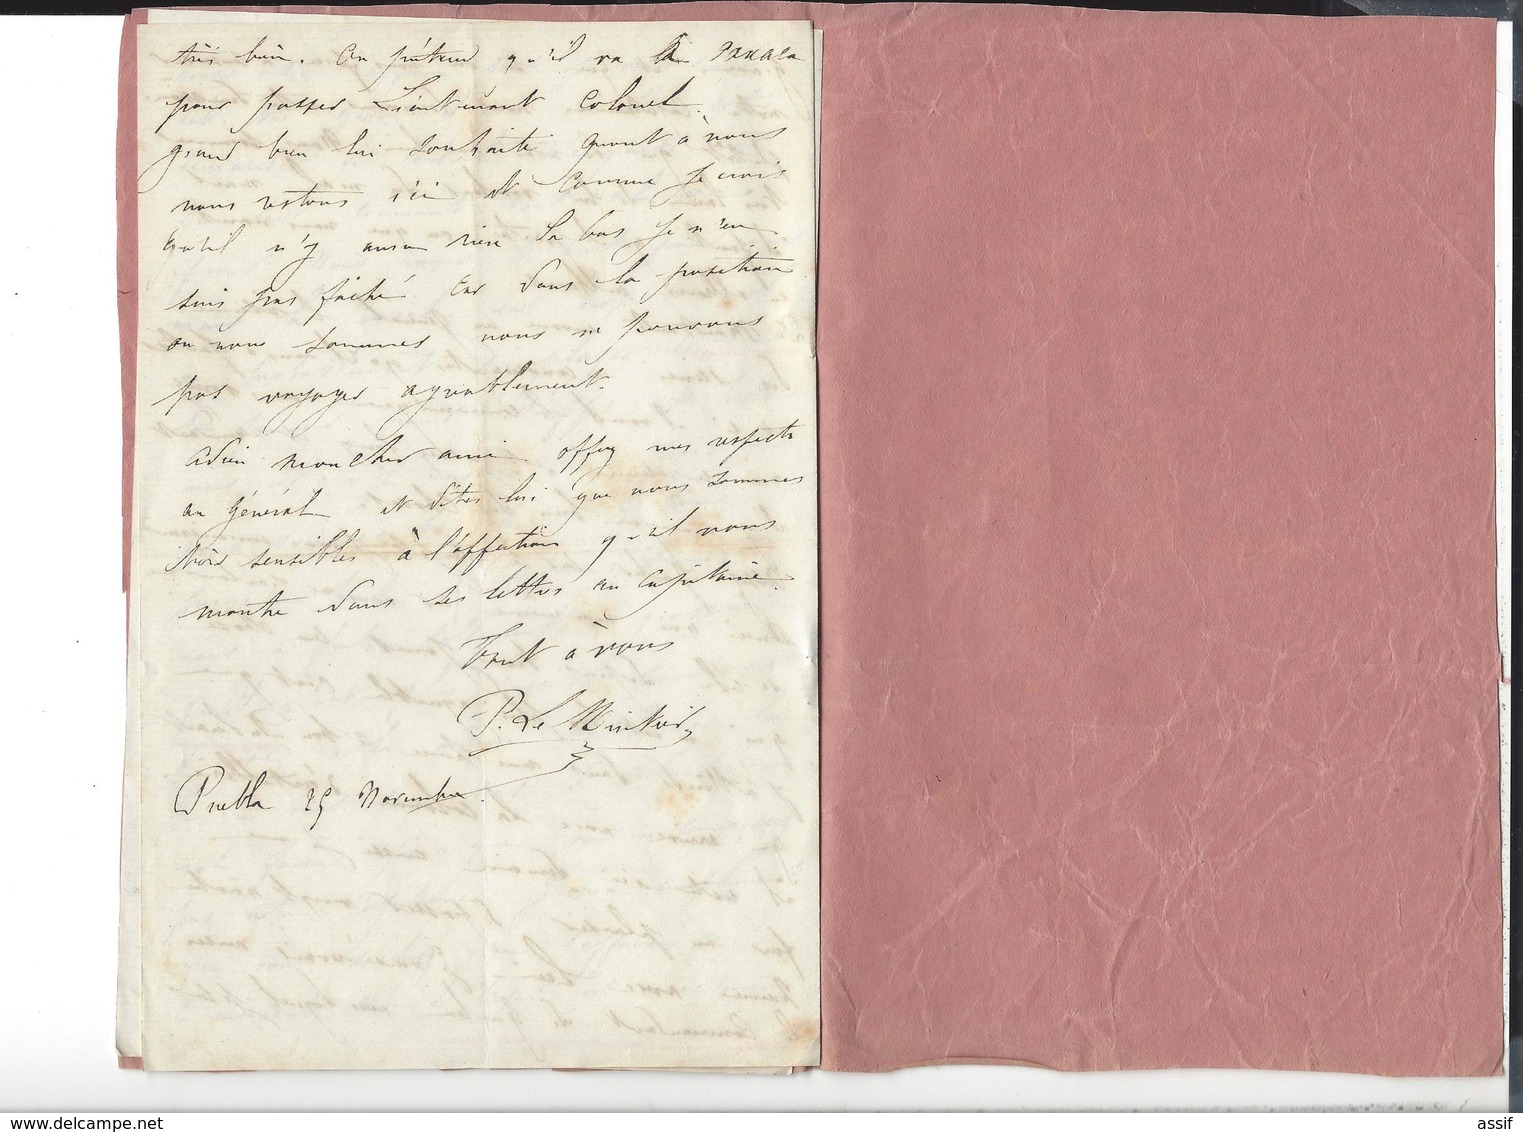 très bien. On prétend qu'il va à
pour passer Lieutenant Colonel.
grand bien lui souhaite quant à nous
nous restons ici et comme je crois
qu'il n'y aura rien la bas je n'en
suis pas faché car dans la position
ou nous sommes nous ne pouvons
pas voyager agreablement.
adieu mon cher ami offrez mes respects
au général et dites lui que nous sommes
très sensibles à l'affection qu'il nous
montre dans ses lettres au capitaine.
Tout à vous
P. Le
Puebla 25 Novembre.
assif
www.delcampe.net